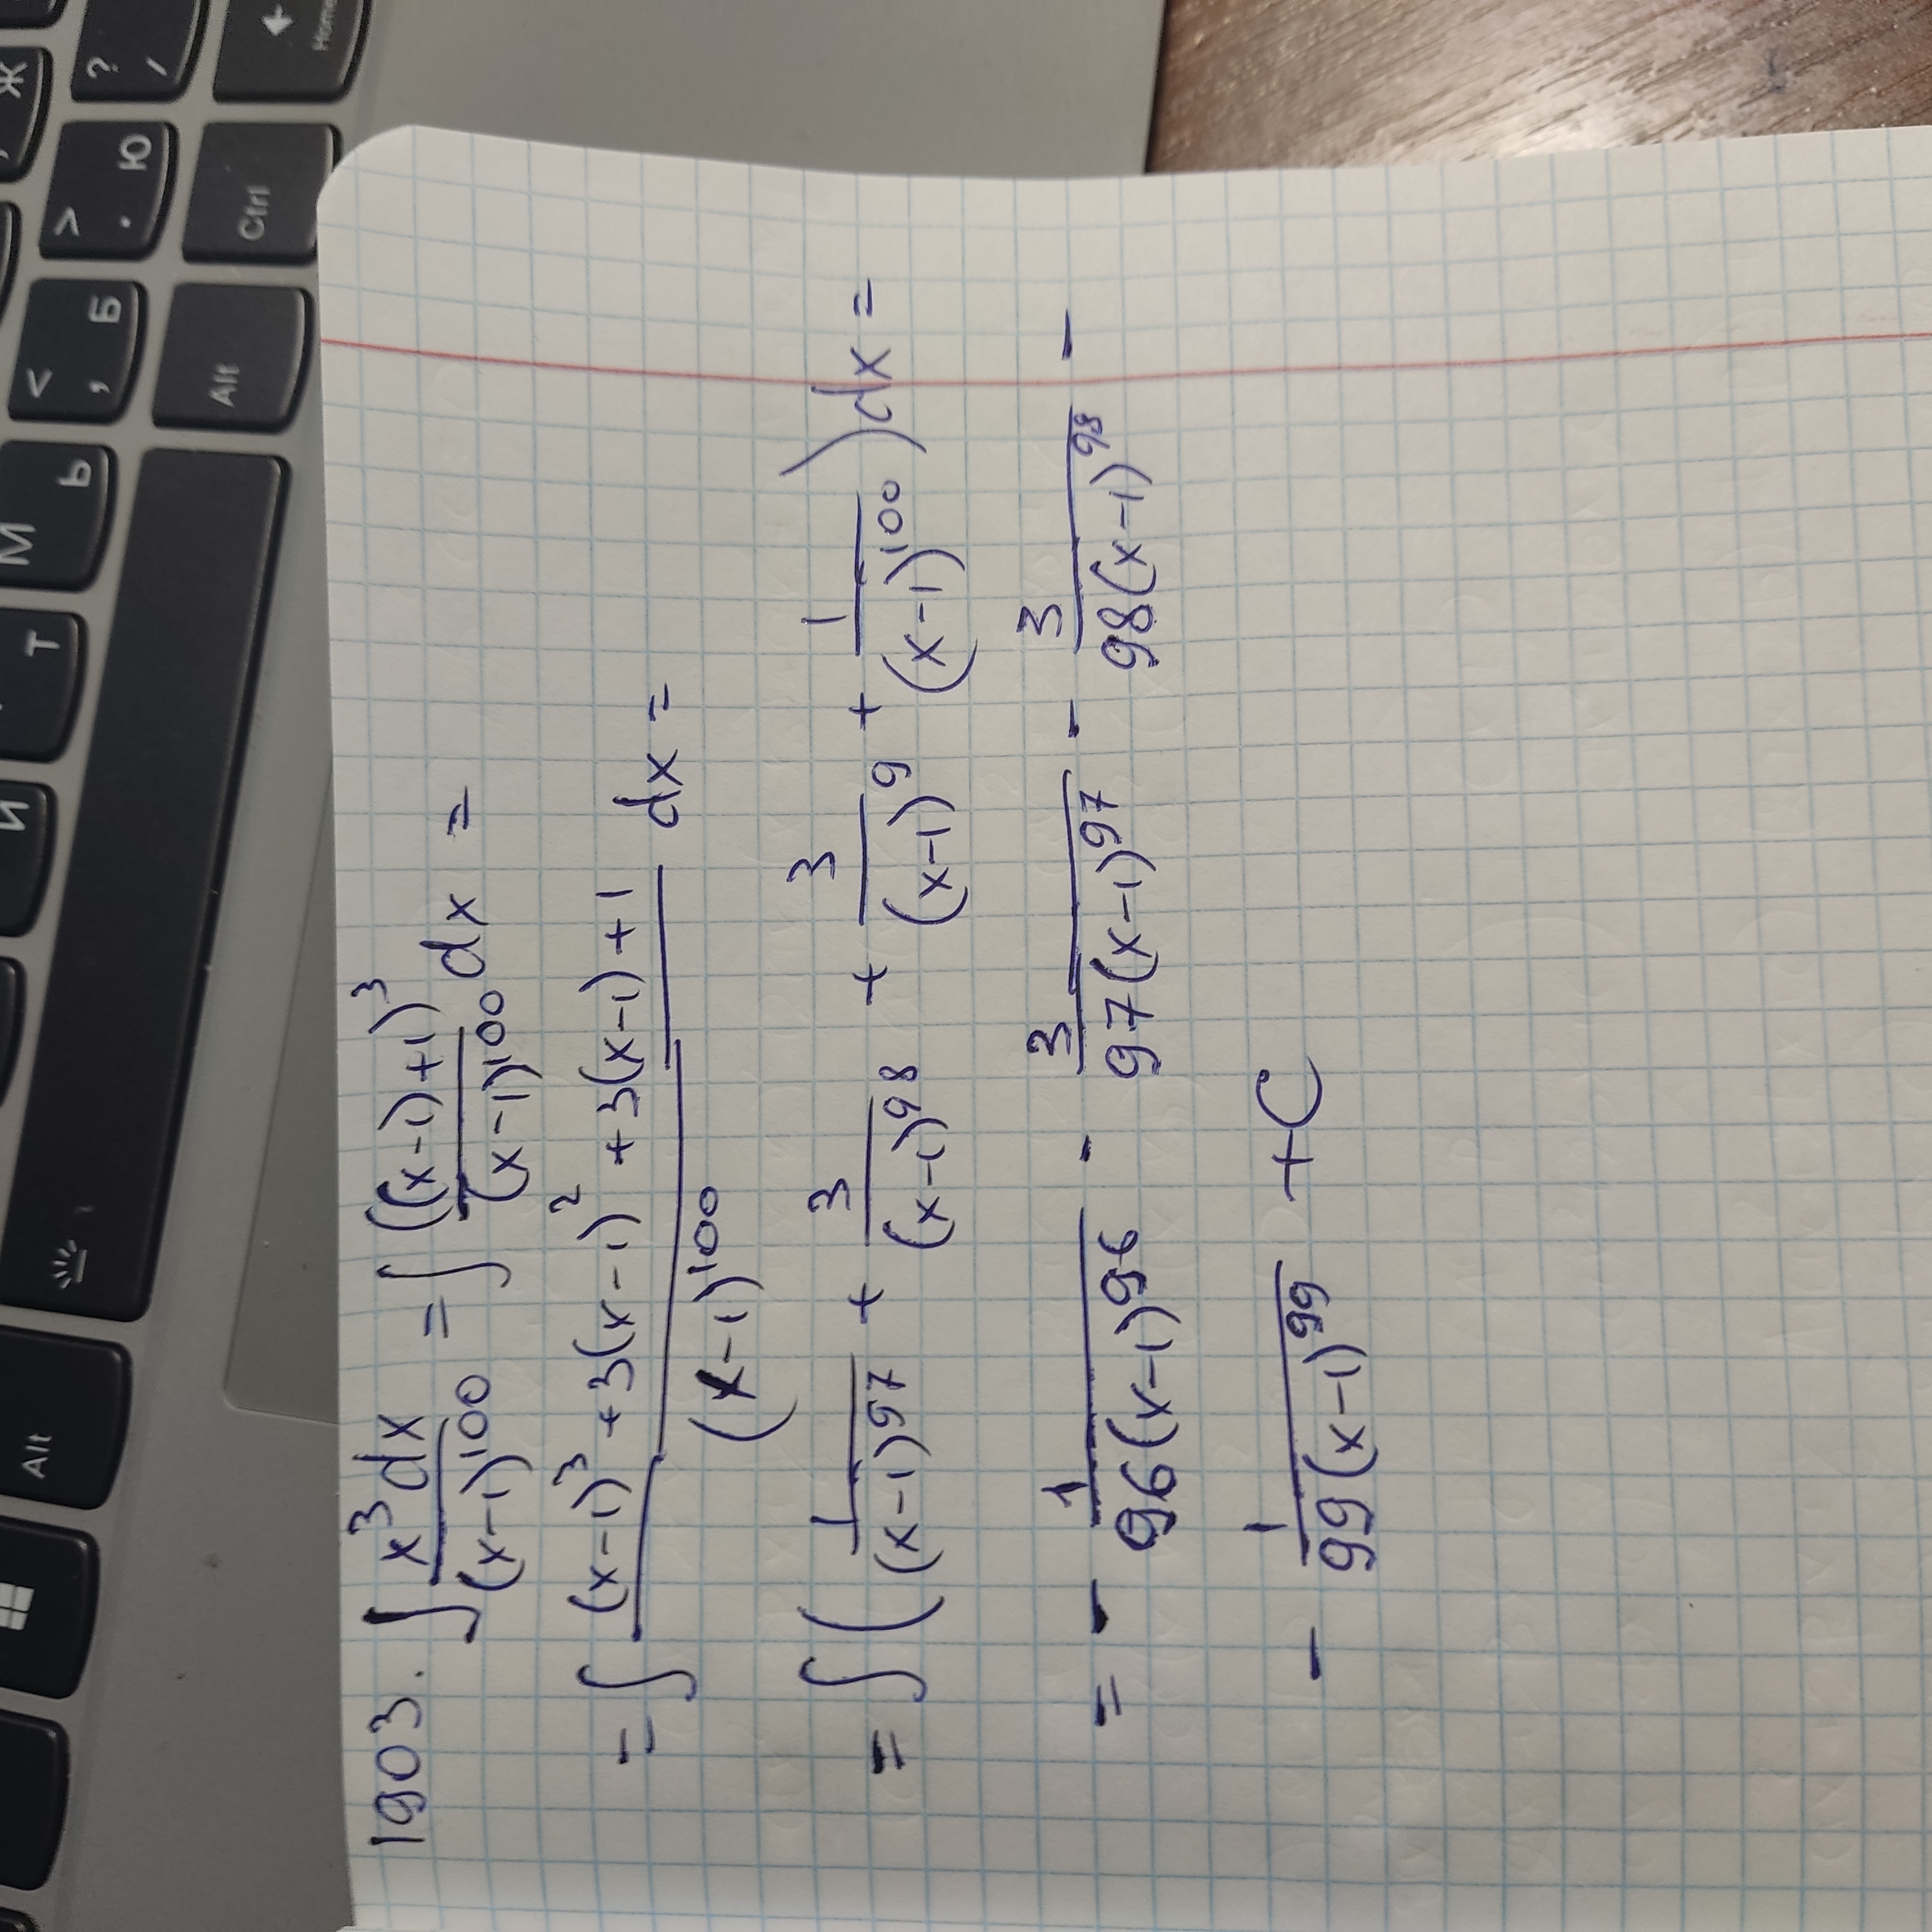 Alt
И
Т
М
Ь
<
, Б
>
. Ю
Ж
?
/
Alt
Ctrl
Home
1903. ∫ x³dx/(x-1)¹⁰⁰ = ∫ ((x-1)+1)³/(x-1)¹⁰⁰ dx =
= ∫ ((x-1)³ + 3(x-1)² + 3(x-1) + 1)/(x-1)¹⁰⁰ dx =
= ∫ ( 1/(x-1)⁹⁷ + 3/(x-1)⁹⁸ + 3/(x-1)⁹ + 1/(x-1)¹⁰⁰ ) dx =
= - 1/96(x-1)⁹⁶ - 3/97(x-1)⁹⁷ - 3/98(x-1)⁹⁸ -
- 1/99(x-1)⁹⁹ + C